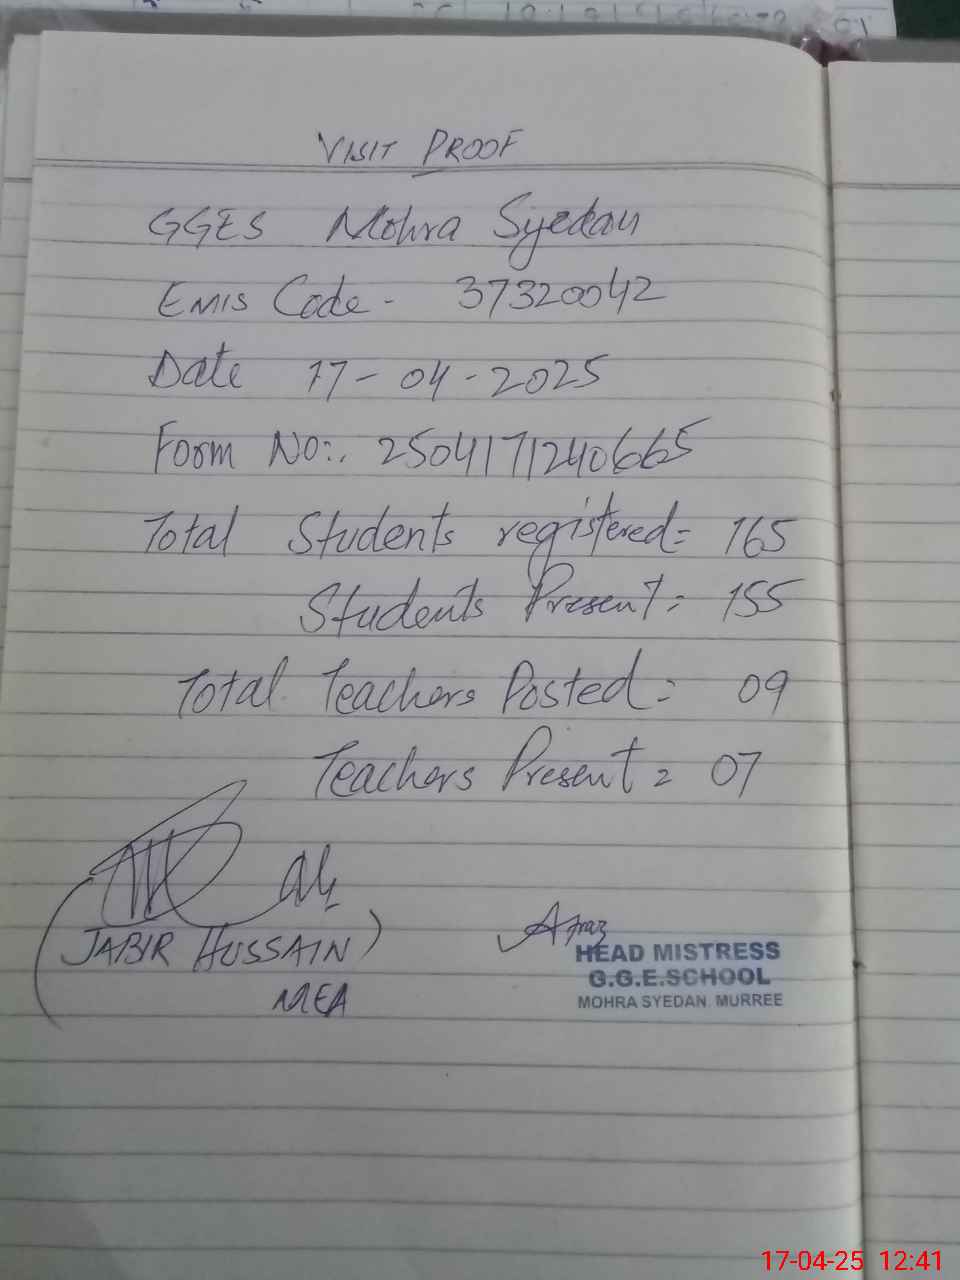 VISIT PROOF
GGES Mohra Syedan
EMIS Code - 37320042
Date 17-04-2025
Form No:. 2504171240665
Total Students registered = 165
Students Present = 155
Total Teachers Posted = 09
Teachers Present = 07
(JABIR HUSSAIN)
MEA
HEAD MISTRESS
G.G.E.SCHOOL
MOHRA SYEDAN. MURREE
17-04-25 12:41